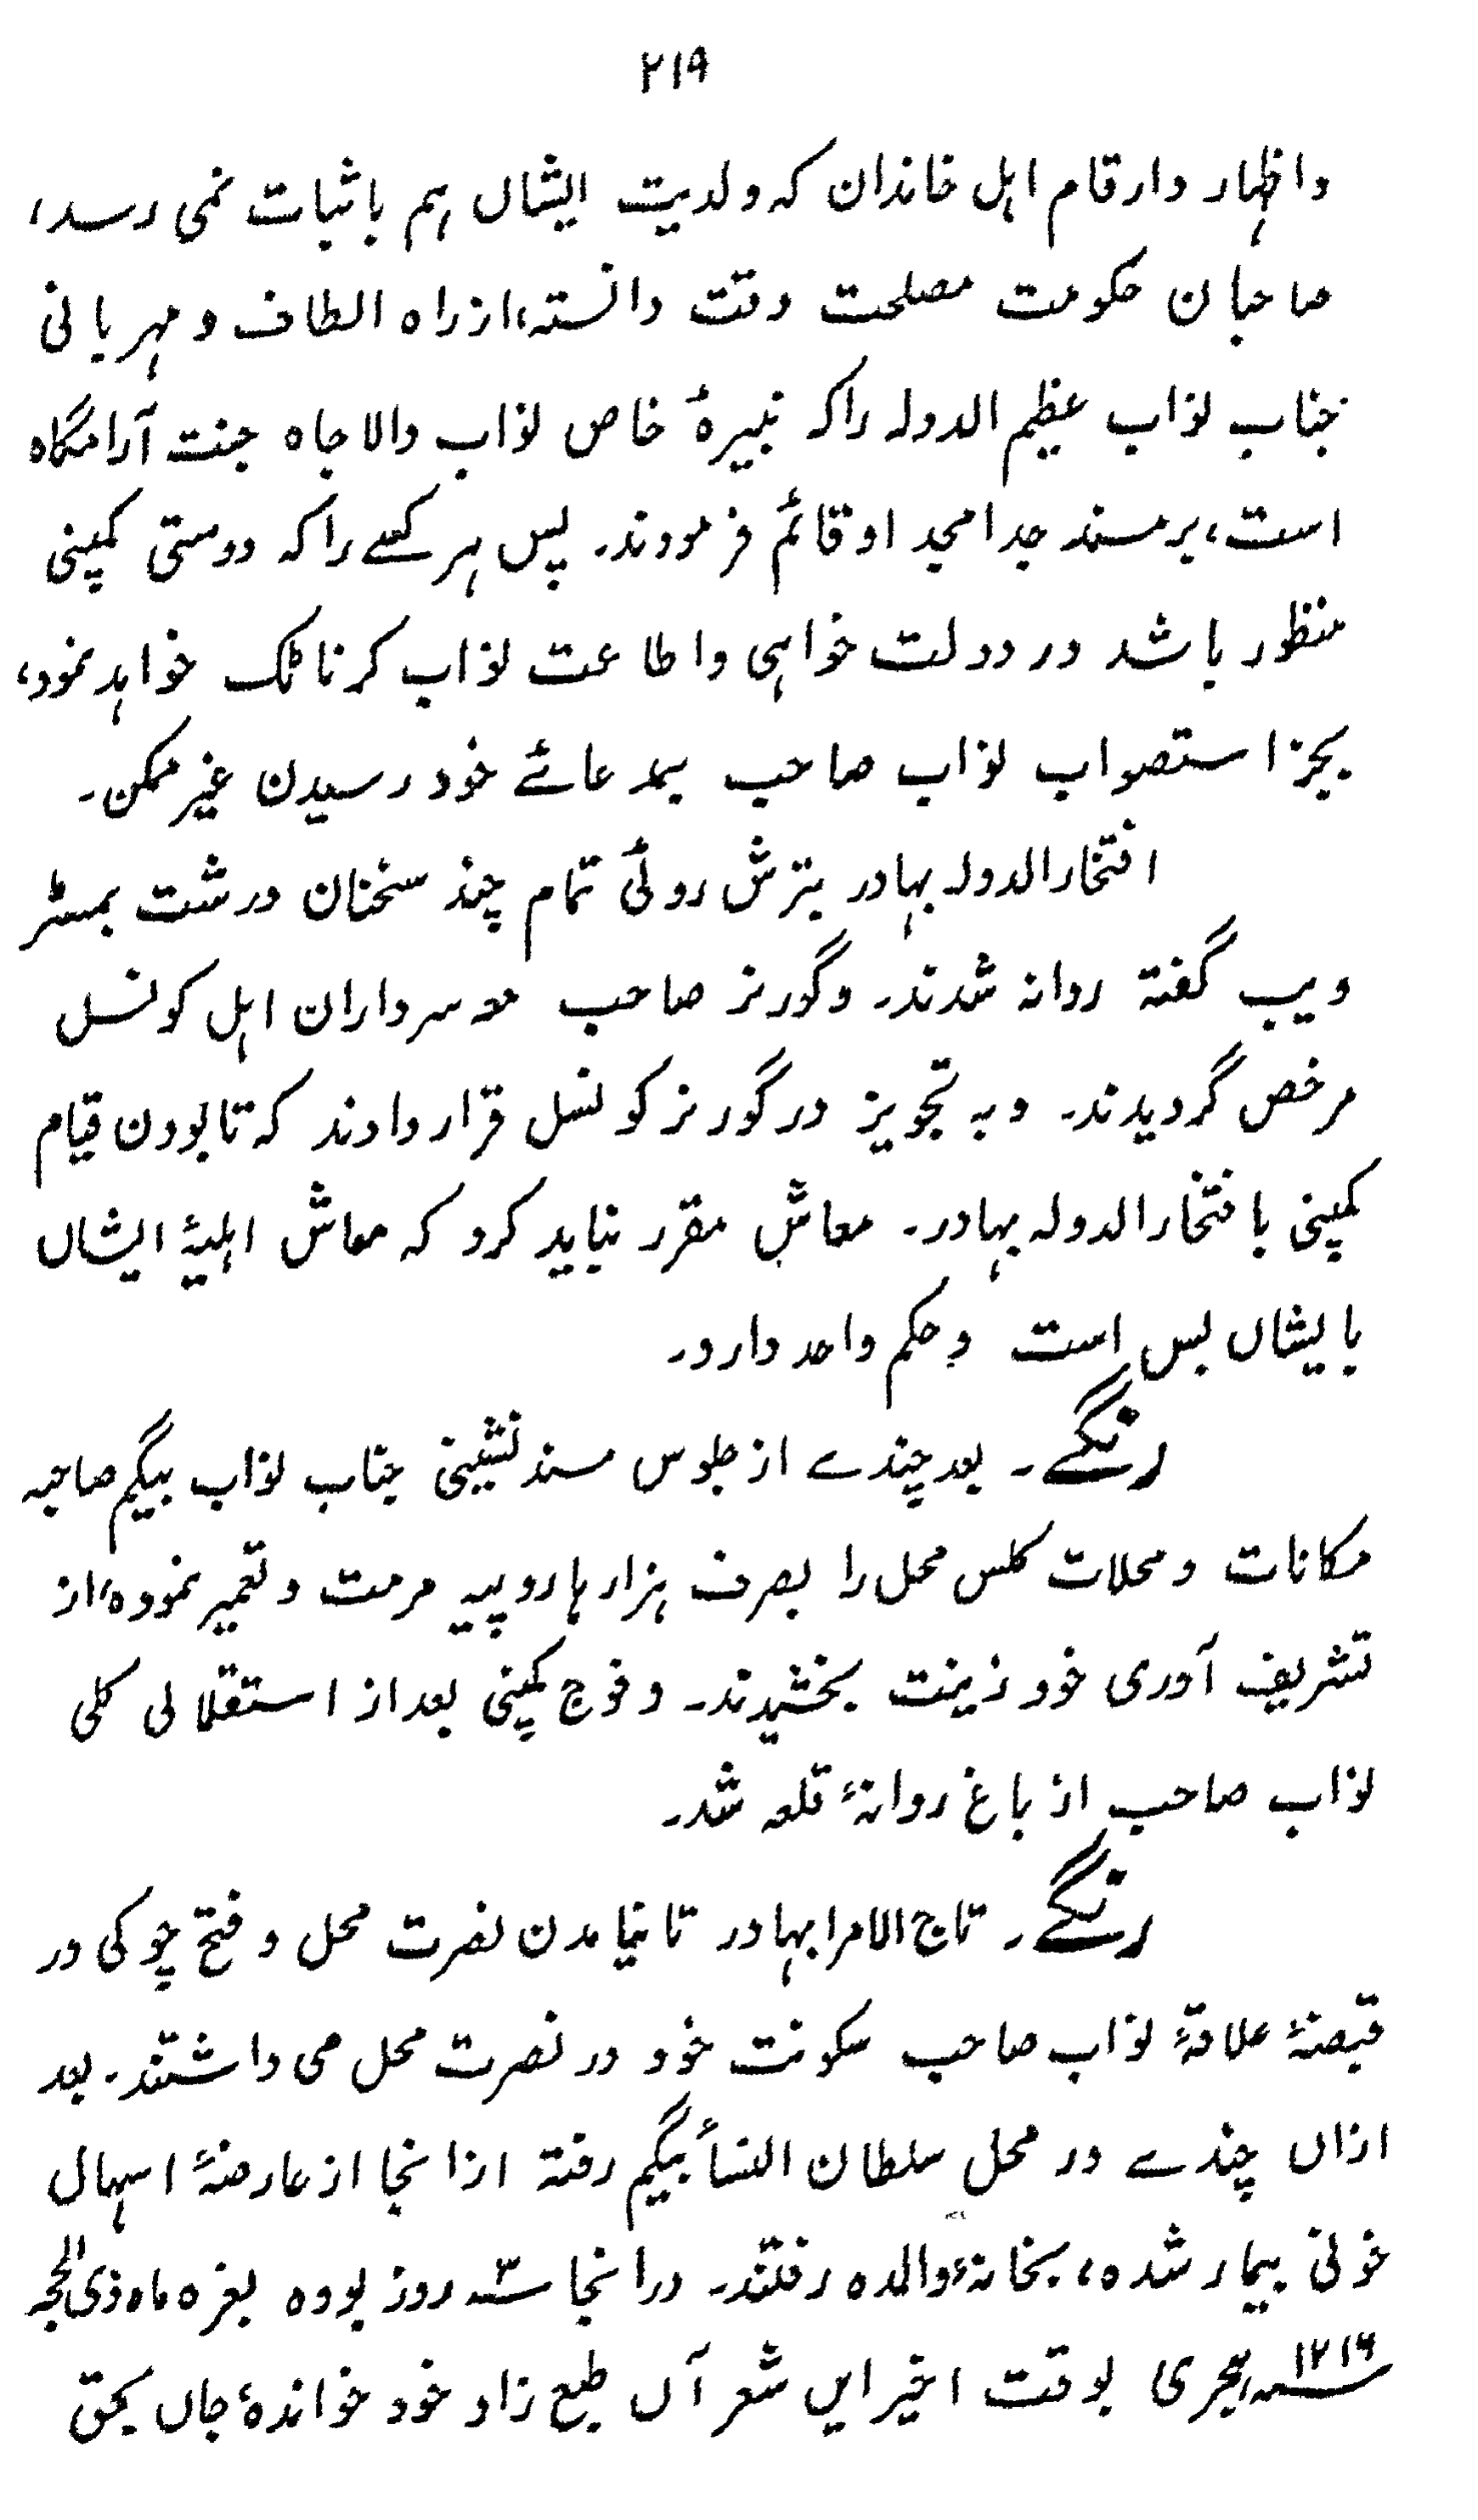 ۲۱۹
واظہار وارقام اہل خاندان کہ ولدیت ایشاں ہم باثبات نمی رسد،
صاحبان حکومت مصلحت وقت دانستہ، ازراہ الطاف و مہربانی
جناب نواب عظیم الدولہ راکہ نبیرۂ خاص نواب والاجاہ جنت آرامگاہ
است، برمسند جدامجد اوقائم فرمودند۔ پس ہرکسے راکہ دوستی کمپنی
منظور باشد در دولت خواہی واطاعت نواب کرناٹک خواہدنمود،
بجز استصواب نواب صاحب بمدعائے خود رسیدن غیرممکن۔
افتخارالدولہ بہادر بترش روئی تمام چند سخنان درشت بمسٹر
ویب گفتہ روانہ شدند۔ وگورنر صاحب معہ سرداران اہل کونسل
مرخص گردیدند۔ وبہ تجویز در گورنر کونسل قراردادند کہ تابودن قیام
کمپنی بافتخارالدولہ بہادر۔ معاش مقرر نباید کرد کہ معاش اہلیۂ ایشاں
بایشاں بس است وحکم واحد دارد۔
رنگے۔ بعد چندے از جلوس مسندنشینی جناب نواب بیگم صاحبہ
مکانات و محلات کلس محل را بصرف ہزارہا روپیہ مرمت و تعمیر نمودہ، از
تشریف آوری خود زینت بخشیدند۔ وفوج کمپنی بعداز استقلالی کلی
نواب صاحب از باغ روانۂ قلعہ شد۔
رنگے۔ تاج الامرا بہادر تانیامدن نصرت محل و فتح چوکی در
قبضۂ علاقۂ نواب صاحب سکونت خود در نصرت محل می داشتند۔ بعد
ازاں چندے در محل سلطان النسأ بیگم رفتہ ازانجا از عارضۂ اسہال
خونی بیمار شدہ، بخانۂ والدہ رفتند۔ درانجا سہ روز بودہ بغرہ ماہ ذی الحجہ
۱۲۱۶ سنہ ہجری بوقت اخیر ایں شعر آں طبع زاد خود خواندۂ جاں بحق